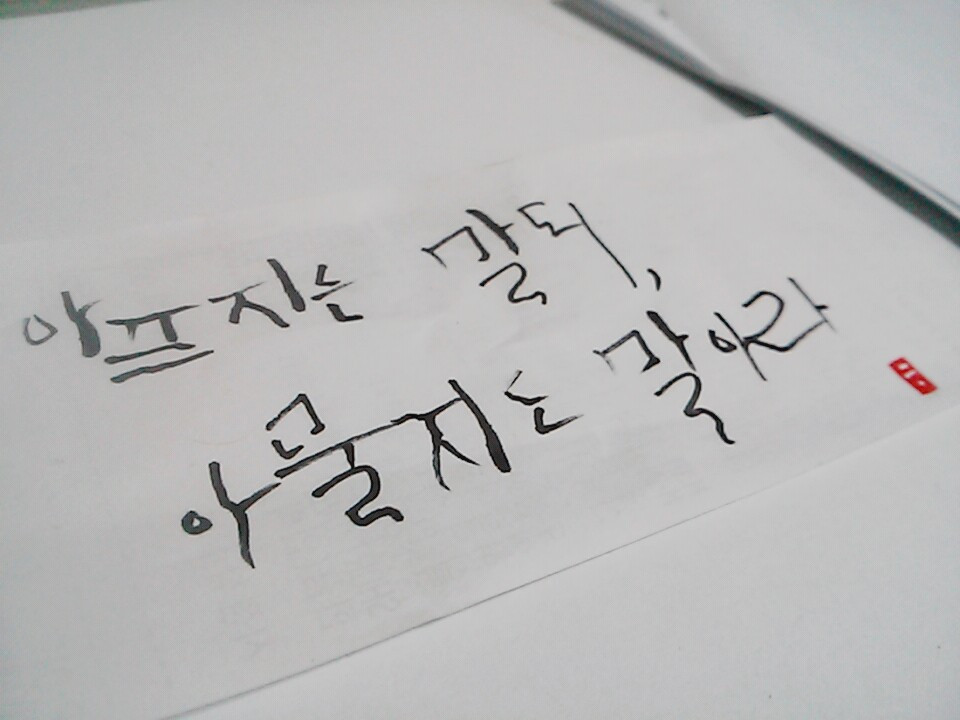 아프지는 말되,
아물지는 말아라